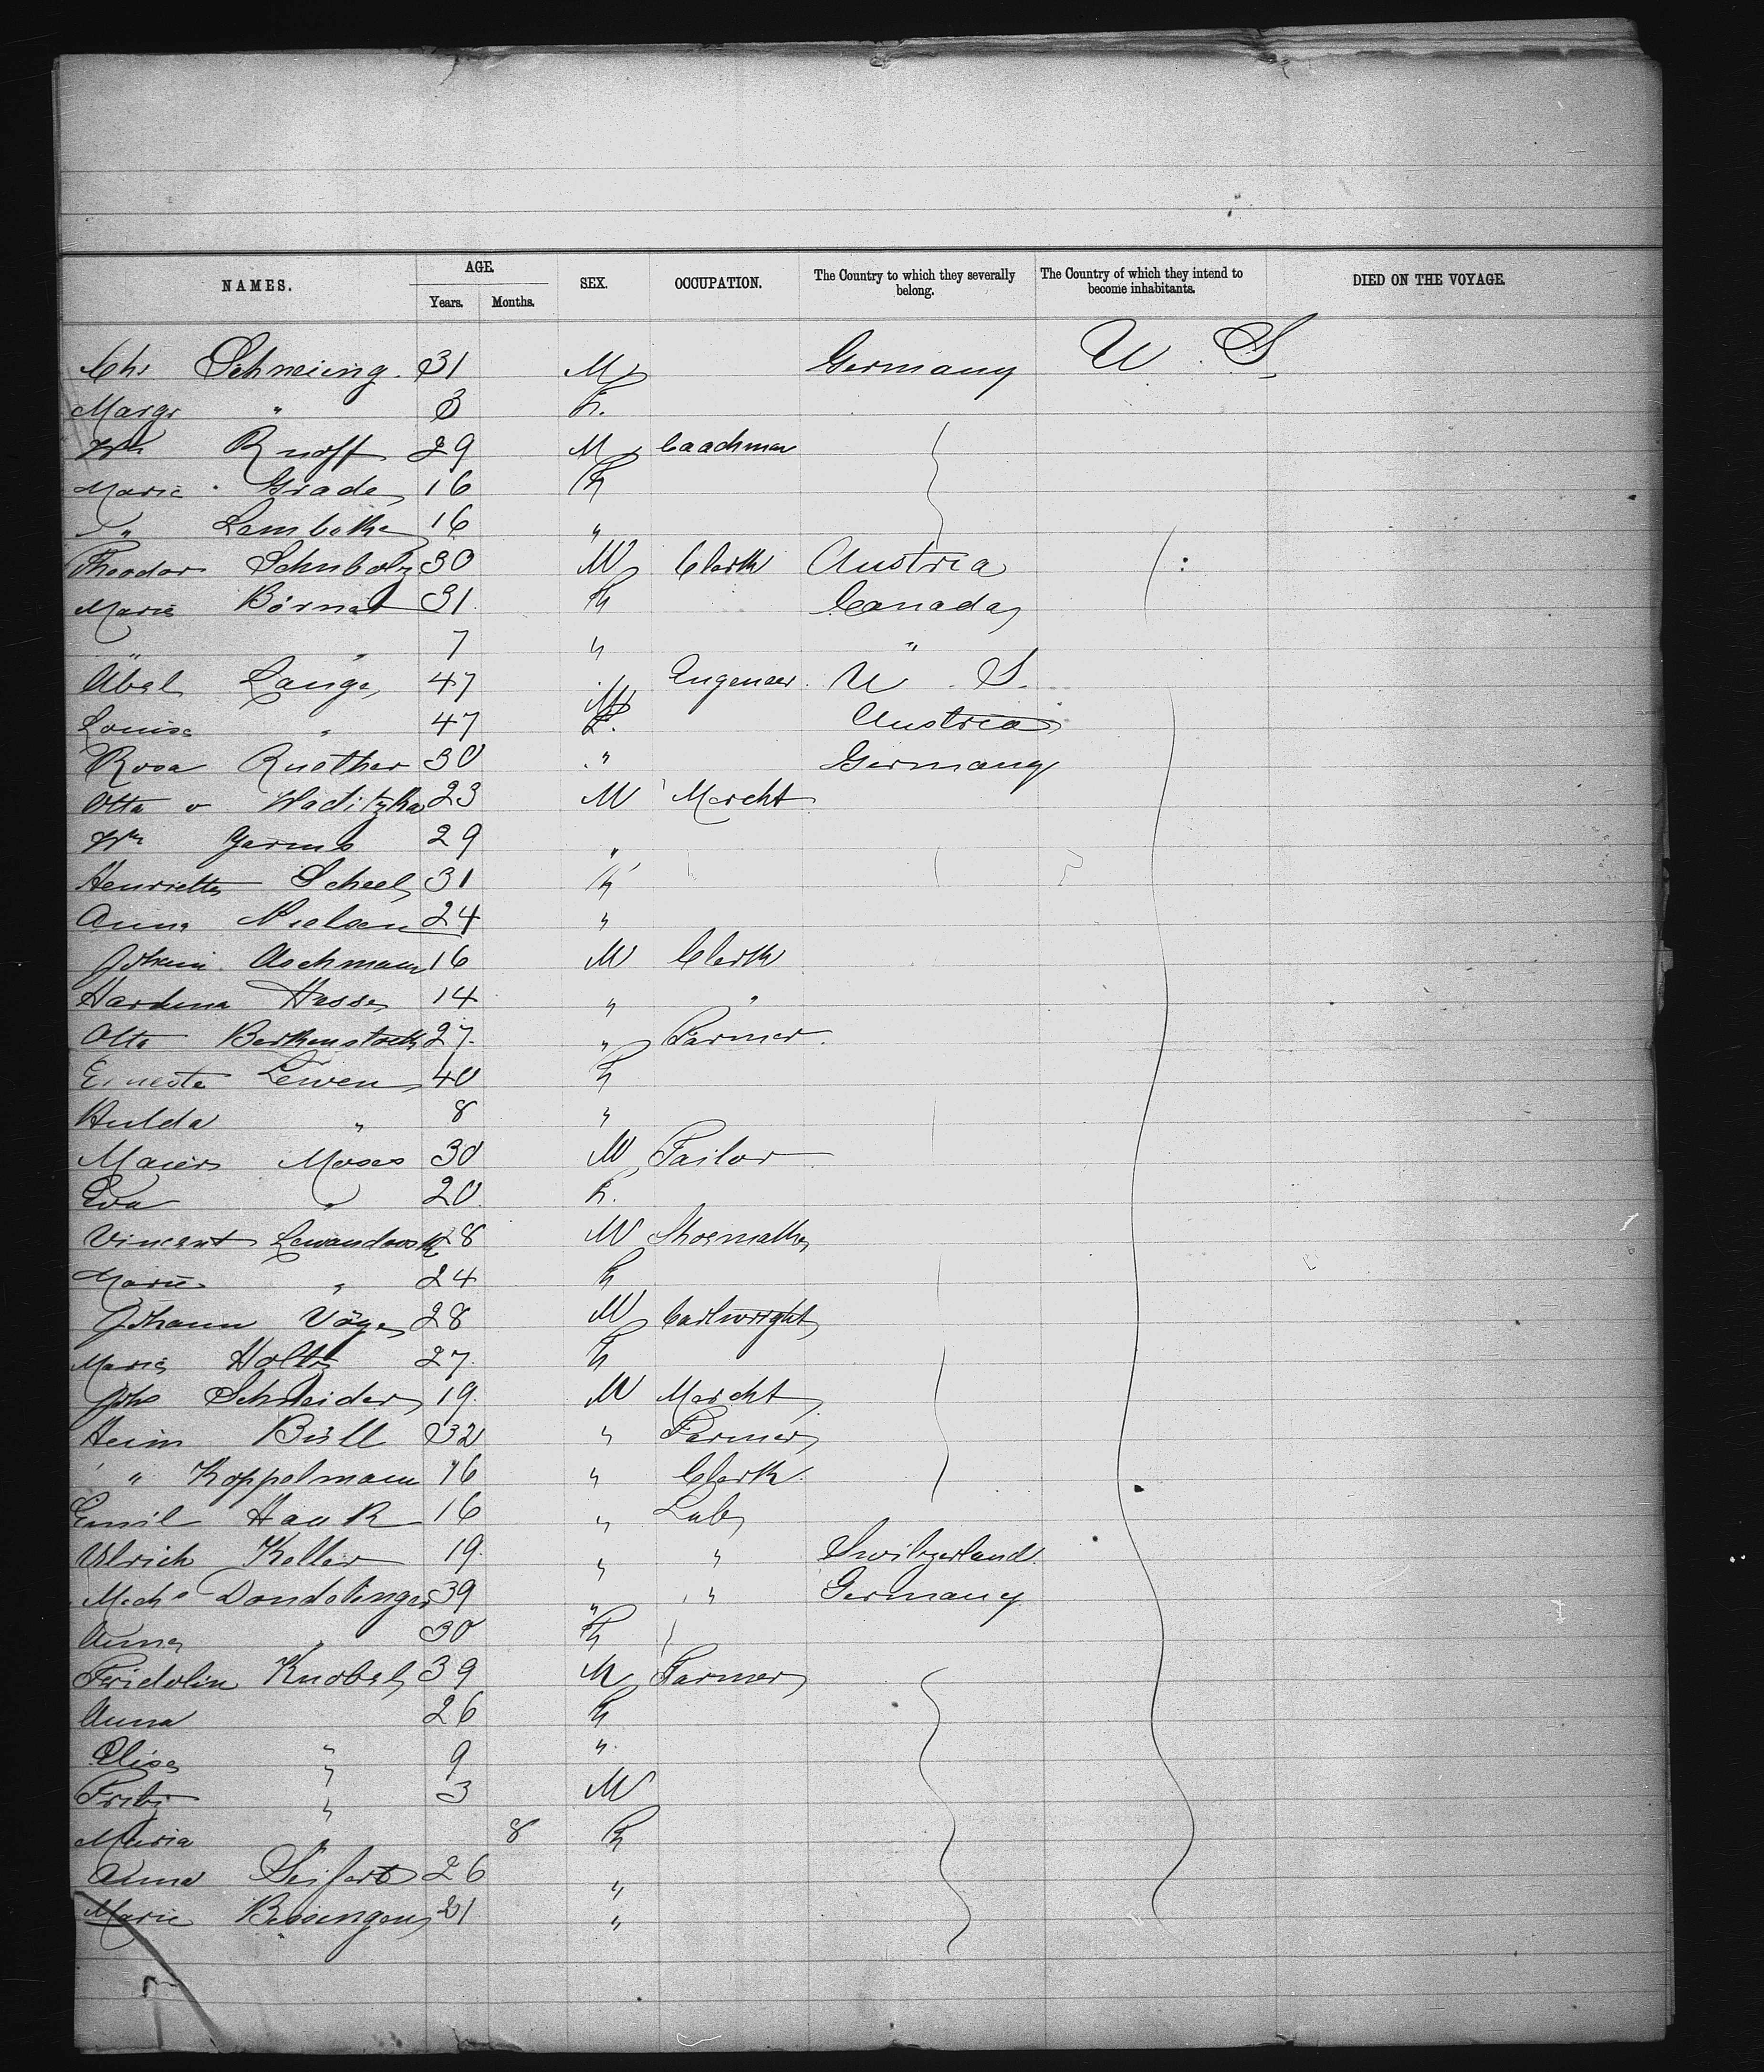 NAMES. AGE. SEX. OCCUPATION. The Country to which they severally belong. The Country of which they intend to become inhabitants. DIED ON THE VOYAGE.
Years. Months.
Chr Schneiing. 31 M Germany U. S.
Margr " 3 F.
Wm Knoff 29 M Coachman
Marie Grade 16 F
" Lembothe 16 "
Theodor Schubolz 30 M Clerk Austria
Marie Börnat 31 F Canada
" " 7 " "
Abel Lange 47 M Engeneer U. S.
Louise " 47 F. Austria
Rosa Ruether 30 " Germany
Otto v Waditzka 23 M Marcht
Wm Germs 29 "
Henrietta Scheel 31 F
Anna Nielsen 24 "
Johann Aschmann 16 M Clerk
Hardena Hasse 14 " "
Otto Berkenstock 27 " Farmer
Erneste Lewen 40 F
Hulda " 8 "
Maier Moses 30 M Tailor
Eva " 20 F.
Vincent Lewandowsk 28 M Shoemaker
Marie " 24 F
Johann Vöge 28 M Cartwright
Marie Holtz 27 F
Johs Schneider 19 M Marcht
Heinr Büll 32 " Farmer
" Koppelmann 16 " Clerk
Emil Hauk 16 " Lab
Ulrich Keller 19 " " Switzerland
Mich Dondelinger 39 " " Germany
Anna " 30 F
Fridolin Knobel 39 M Farmer
Anna 26 F
Elise " 9 "
Fritz " 3 M
Maria " 8 F
Anna Seifert 26 "
Marie Bissingen 21 "